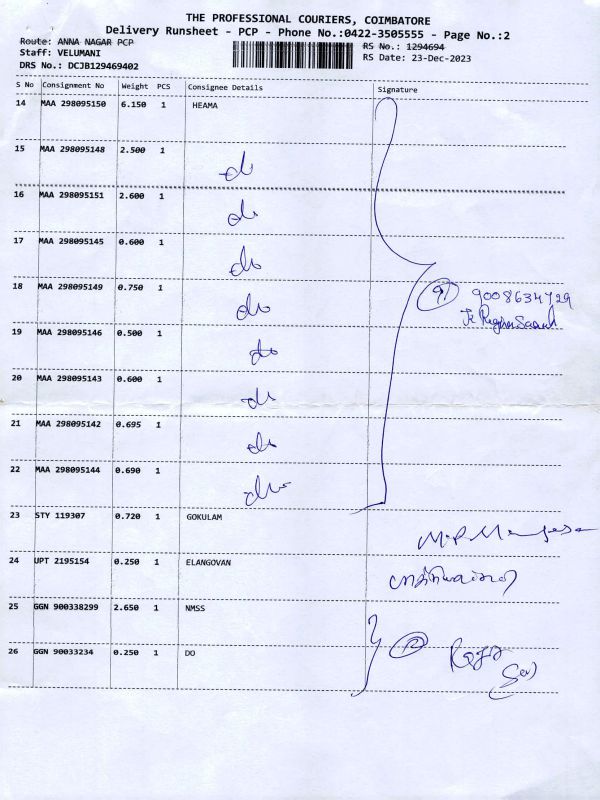 THE PROFESSIONAL COURIERS, COIMBATORE
Delivery Runsheet - PCP - Phone No.:0422-3505555 - Page No.:2
Route: ANNA NAGAR PCP RS No.: 1294694
Staff: VELUMANI RS Date: 23-Dec-2023
DRS No.: DCJB129469402
S No Consignment No Weight PCS Consignee Details Signature
14 MAA 298095150 6.150 1 HEAMA
15 MAA 298095148 2.500 1 do
16 MAA 298095151 2.600 1 do
17 MAA 298095145 0.600 1 do
18 MAA 298095149 0.750 1 do
9 9008634729
19 MAA 298095146 0.500 1 do
20 MAA 298095143 0.600 1 do
21 MAA 298095142 0.695 1 do
22 MAA 298095144 0.690 1 do
23 STY 119307 0.720 1 GOKULAM
24 UPT 2195154 0.250 1 ELANGOVAN
25 GGN 900338299 2.650 1 NMSS
26 GGN 90033234 0.250 1 DO 2